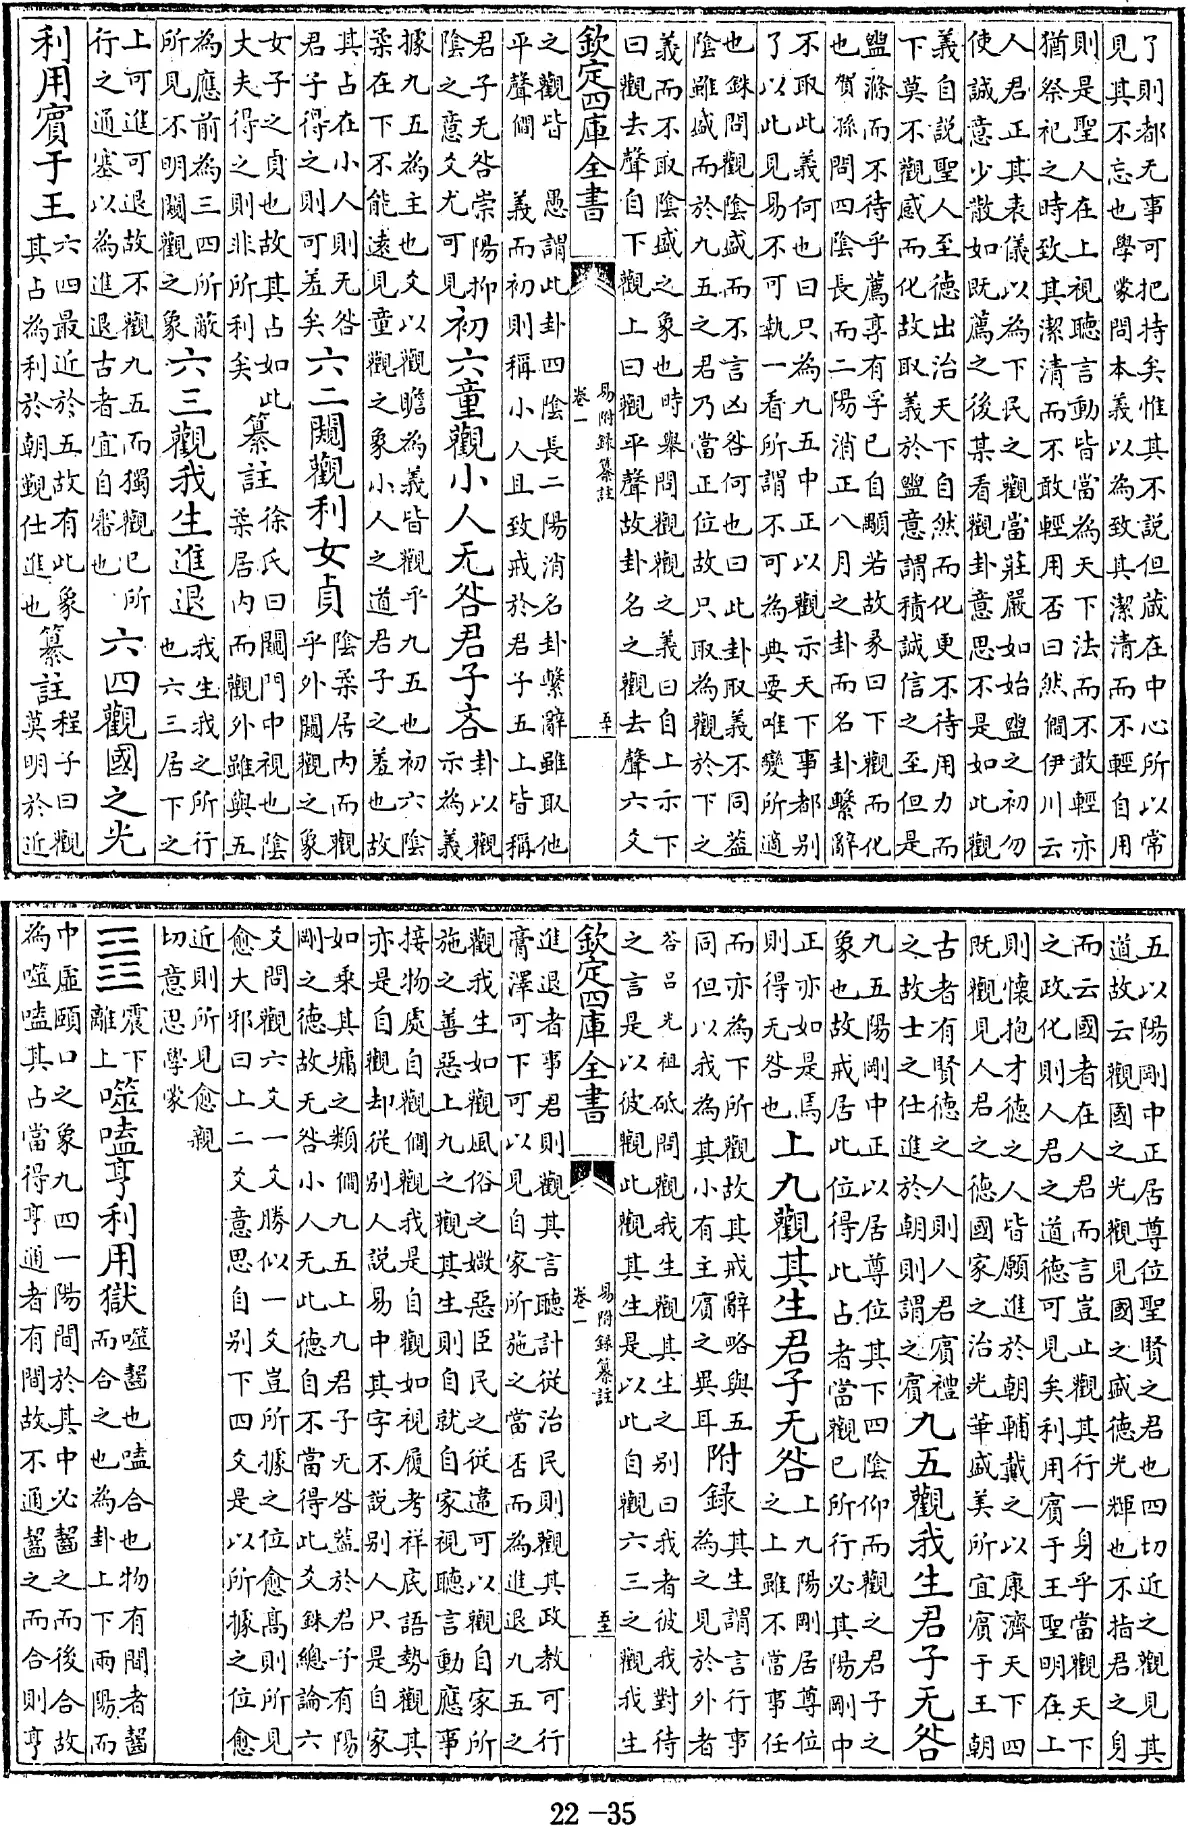 了則都无事可把持矣惟其不説但蔵在中心所以常
見其不忘也學蒙問本義以為致其潔清而不輕自用
則是聖人在上視聽言動皆當為天下法而不敢輕亦
猶祭祀之時致其潔清而不敢輕用否曰然僩伊川云
人君正其表儀以為下民之觀當莊嚴如始盥之初勿
使誠意少散如既薦之後某看觀卦意思不是如此觀
義自説聖人至德出治天下自然而化更不待用力而
下莫不觀感而化故取義於盥意謂積誠信之至但是
盥滌而不待乎薦享有孚已自顒若故彖曰下觀而化
也賀孫問四陰長而二陽消正八月之卦而名卦繫辭
不取此義何也曰只為九五中正以觀示天下事都别
了以此見易不可執一看所謂不可為典要唯變所適
也銖問觀陰盛而不言凶咎何也曰此卦取義不同葢
陰雖盛而於九五之君乃當正位故只取為觀於下之
義而不取陰盛之象也時舉問觀觀之義曰自上示下
曰觀去聲自下觀上曰觀平聲故卦名之觀去聲六爻
欽定四庫全書 易附録纂註 卷一 五十
之觀皆平聲僩 愚謂此卦四陰長二陽消名卦繫辭雖取他
義而初則稱小人且致戒於君子五上皆稱
君子无咎崇陽抑
陰之意爻尤可見 初六童觀小人无咎君子吝 卦以觀
示為義
據九五為主也爻以觀瞻為義皆觀乎九五也初六陰
柔在下不能遠見童觀之象小人之道君子之羞也故
其占在小人則无咎
君子得之則可羞矣 六二闚觀利女貞 陰柔居内而觀
乎外闚觀之象
女子之貞也故其占如此
大夫得之則非所利矣 纂註 徐氏曰闚門中視也陰
柔居内而觀外雖與五
為應前為三四所蔽
所見不明闚觀之象 六三觀我生進退 我生我之所行
也六三居下之
上可進可退故不觀九五而獨觀已所
行之通塞以為進退占者宜自審也 六四觀國之光
利用賓于王 六四最近於五故有此象
其占為利於朝覲仕進也 纂註 程子曰觀
莫明於近
五以陽剛中正居尊位聖賢之君也四切近之觀見其
道故云觀國之光觀見國之盛德光輝也不指君之身
而云國者在人君而言豈止觀其行一身乎當觀天下
之政化則人君之道德可見矣利用賓于王聖明在上
則懐抱才德之人皆願進於朝輔戴之以康濟天下四
既觀見人君之德國家之治光華盛美所宜賓于王朝
古者有賢德之人則人君賓禮
之故士之仕進於朝則謂之賓 九五觀我生君子无咎
九五陽剛中正以居尊位其下四陰仰而觀之君子之
象也故戒居此位得此占者當觀已所行必其陽剛中
正亦如是焉
則得无咎也 上九觀其生君子无咎 上九陽剛居尊位
之上雖不當事任
而亦為下所觀故其戒辭略與五
同但以我為其小有主賓之異耳 附録 其生謂言行事
為之見於外者
荅吕光祖砥問觀我生觀其生之别曰我者彼我對待
之言是以彼觀此觀其生是以此自觀六三之觀我生
欽定四庫全書 易附録纂註 卷一 五十一
進退者事君則觀其言聽計從治民則觀其政教可行
膏澤可下可以見自家所施之當否而為進退九五之
觀我生如觀風俗之媺惡臣民之從違可以觀自家所
施之善惡上九之觀其生則自就自家視聽言動應事
接物處自觀僩觀我是自觀如視履考祥底語勢觀其
亦是自觀却從别人說易中其字不説别人只是自家
如乗其墉之類僩九五上九君子无咎葢於君子有陽
剛之德故无咎小人无此德自不當得此爻銖總論六
爻問觀六爻一爻勝似一爻豈所據之位愈高則所見
愈大邪曰上二爻意思自别下四爻是以所據之位愈
近則所見愈親
切意思學蒙
䷔ 震下
離上 噬嗑亨利用獄 噬齧也嗑合也物有間者齧
而合之也為卦上下兩陽而
中虛頤口之象九四一陽間於其中必齧之而後合故
為噬嗑其占當得亨通者有間故不通齧之而合則亨
22-35